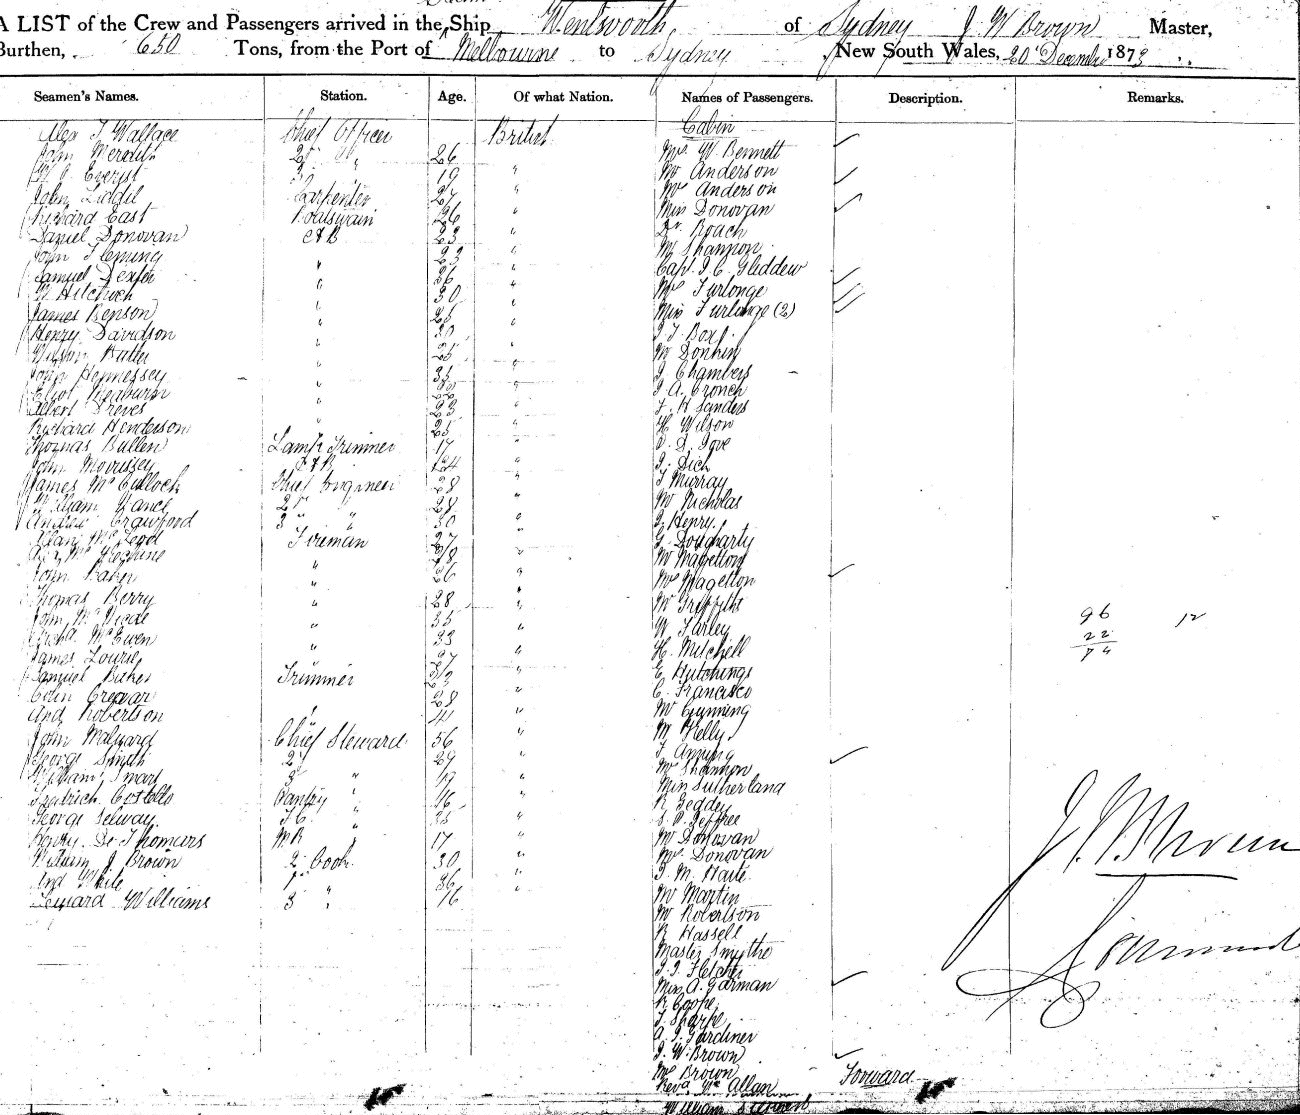 A LIST of the Crew and Passengers arrived in the Ship Wentworth of Sydney J. W Brown Master,
Burthen, 650 Tons, from the Port of Melbourne to Sydney New South Wales, 20 December 1873
Seamen's Names. Station. Age. Of what Nation. Names of Passengers. Description. Remarks.
Alex T Wallace Chief Officer British Cabin
John Meredith 2nd " 26 " Mrs W. Bennett
W J Everist 3 " 19 " Mr Anderson
John Liddil Carpenter 27 " Mrs Anderson
Richard East Boatswain 26 " Miss Donovan
Daniel Donovan A B 23 " Dr. Roach
John Fleming " 23 " Mr Shannon
Samuel Dexter " 26 " Capt. J. C. Gleddew
W Hitchcock " 30 " Mrs Furlonge
James Benson " 25 " Miss Furlonge (2)
Henry Davidson " 30 " J T Box
Wilson Butler " 25 " Mr Donkin
John Hennessey " 35 " J Chambers
Eliot Hepburn " 22 " J A. Crouch
Albert Dreves " 23 " F. H Sanders
Richard Henderson " 25 " H Wilson
Thomas Bullen Lamp Trimmer 17 " D. S. Love
John Morrissey A B 24 " J. Dich
James McCulloch Chief Engineer 28 " T Murray
William Vance 2nd " 28 " Mr Nicholas
Andrew Crawford 3 " 30 " J Henry
Allan McLeod Fireman 27 " G Dougharty
" Mr Magetton
John Baker " 26 " Mrs Magetton
Thomas Berry " 28 " Mr Griffiths
John McDicde " 35 " W Farley 96 12
Archd McEwen " 33 " H. Mitchell 22
James Lourie " 27 " E Hutchings 74
Samuel Baker Trimmer 23 " C. Francisco
Colin Grewar " 28 " Mr Gunning
And Robertson " 41 " M Kelly
John Malyard Chief Steward 56 " J Aming
George Smith 2 " 29 " Mr Shannon
William Smart 3 " 19 " Miss Sutherland
Fredrick Costello Pantry " 16 " R Geddes
George Selway F C " 25 " S. P. Jeffree
Henry De Thomars M R " 17 " Mr Donovan
William J Brown 2 Cook 30 " Mrs Donovan
And White 1st " 36 " J. M. Haile
Leward Williams 3 " 16 Mr Martin
Mr Robertson
R Hassell
Master Smythe
J. J. Fletcher
Miss A. Garman
R Cooke
T Sharpe
A. J. Gardiner
J. W. Brown
Mrs Brown Forward
Revd Wm Allan
William
J. W. Brown
Command